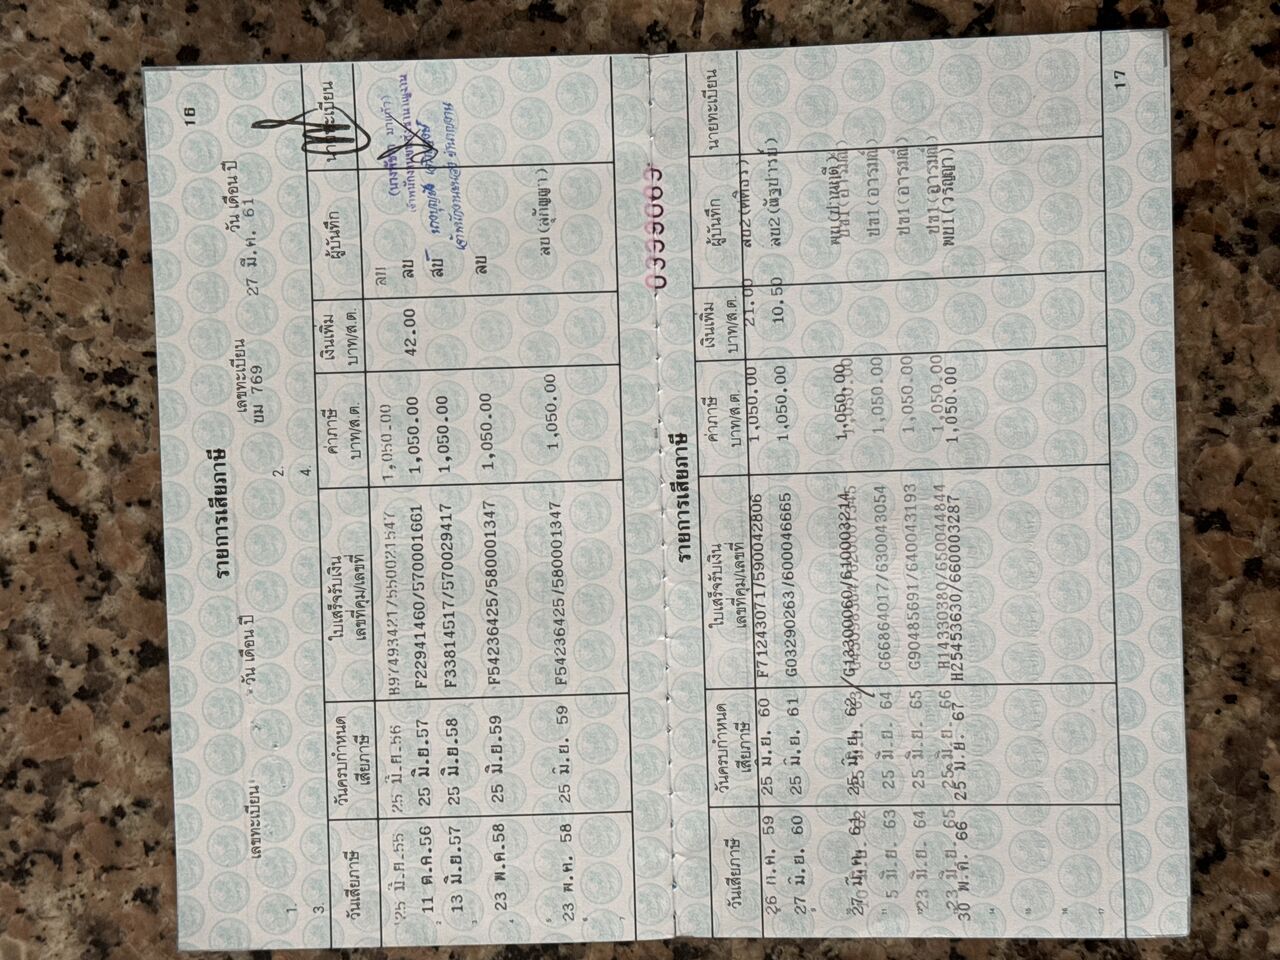 16
รายการเสียภาษี
เลขทะเบียน วัน เดือน ปี เลขทะเบียน วัน เดือน ปี
ขม 769 27 มี.ค. 61
1. 2.
3. 4.
วันเสียภาษี วันครบกำหนดเสียภาษี ใบเสร็จรับเงิน เลขที่คุม/เลขที่ ค่าภาษี บาท/ส.ต. เงินเพิ่ม บาท/ส.ต. ผู้บันทึก นายทะเบียน
25 มิ.ย.55 25 มิ.ย.56 1,050.00 ลบ
11 ต.ค.56 25 มิ.ย.57 F22941460/570001661 1,050.00 42.00 ลบ
13 มิ.ย.57 25 มิ.ย.58 F33814517/570029417 1,050.00
23 พ.ค.58 25 มิ.ย.59 F54236425/580001347 1,050.00 ลบ
23 พ.ค. 58 25 มิ.ย. 59 F54236425/580001347 1,050.00 ลบ(สุกัญญา)
0399069
รายการเสียภาษี
วันเสียภาษี วันครบกำหนดเสียภาษี ใบเสร็จรับเงิน เลขที่คุม/เลขที่ ค่าภาษี บาท/ส.ต. เงินเพิ่ม บาท/ส.ต. ผู้บันทึก นายทะเบียน
26 ก.ค. 59 25 มิ.ย. 60 F71243071/590042806 1,050.00 21.00
27 มิ.ย. 60 25 มิ.ย. 61 G03290263/600046665 1,050.00 10.50
27 มี.ค. 61 25 มิ.ย. 62 G13300060/610003214 1,050.00
5 มิ.ย. 63 25 มิ.ย. 64 G66864017/630043054 1,050.00 ปข1(อารมณ์)
23 มิ.ย. 64 25 มิ.ย. 65 G90485691/640043193 1,050.00 ปข1(อารมณ์)
23 มิ.ย. 65 25 มิ.ย. 66 H14330380/650044844 1,050.00 ปข1(อารมณ์)
30 พ.ค. 66 25 มิ.ย. 67 H25453630/660003287 1,050.00 พย1(วรัญญา)
17